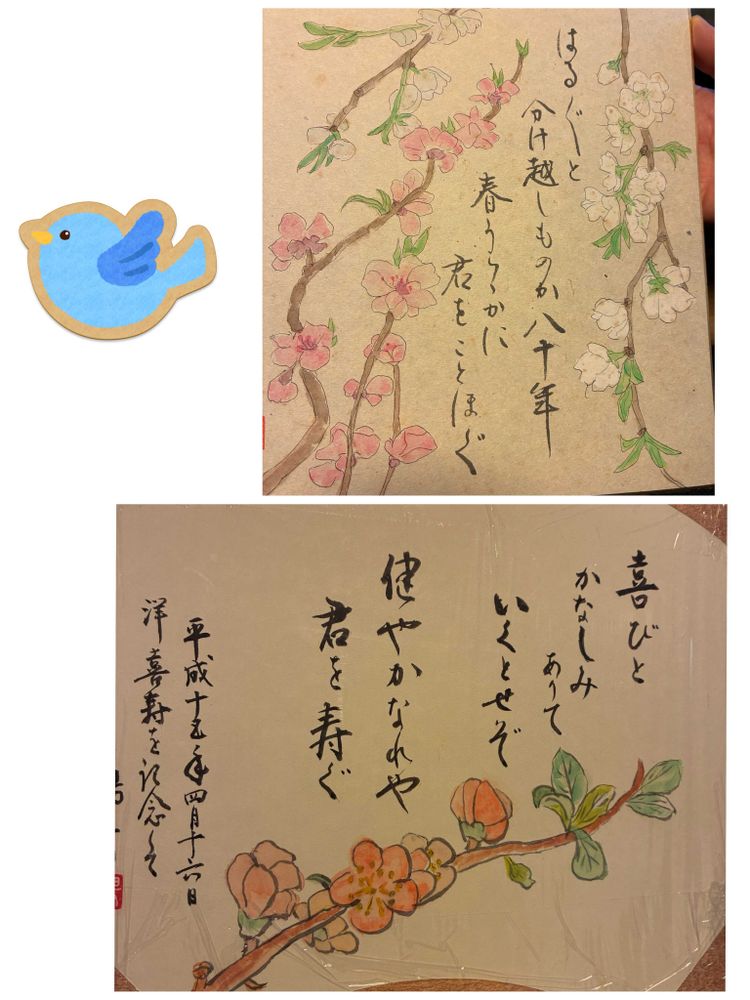 はるぐと
分け越しものか八十年
春うらゝかに
君をことほぐ
喜びと
かなしみ
ありて
いくとせぞ
健やかなれや
君を寿ぐ
平成十五年四月十六日
洋喜寿を記念して